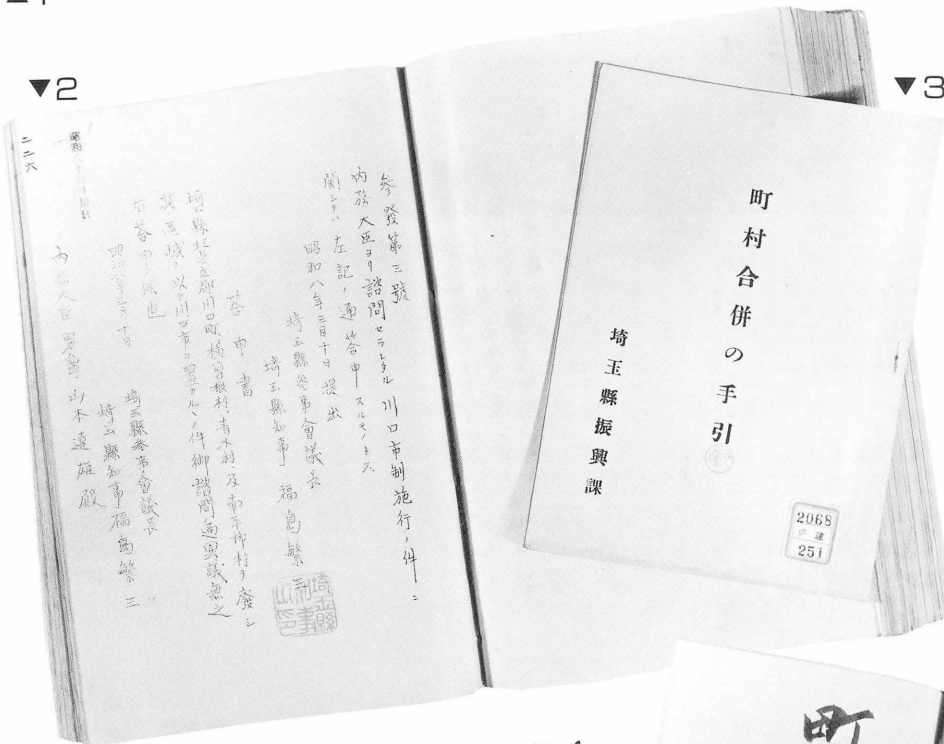 ▼2
▼3
參發第三號
內務大臣ヨリ諮問セラレタル川口市制施行ノ件ニ
關シテハ左記ノ通答申スルモノトス
昭和八年三月十日提出
埼玉縣參事會議長
埼玉縣知事 福島繁三
埼玉縣知事之印
答申書
埼玉縣北足立郡川口町、橫曾根村、青木村、及南平柳村ヲ廢シ
其區域ヲ以テ川口市ヲ置カルヽノ件御諮問通異議無之
右答申候也
昭和八年三月十日
埼玉縣參事會議長
埼玉縣知事 福島繁三
內務大臣男爵山本達雄殿
二二六
町村合併の手引
埼玉縣振興課
2068
伊達
251
町